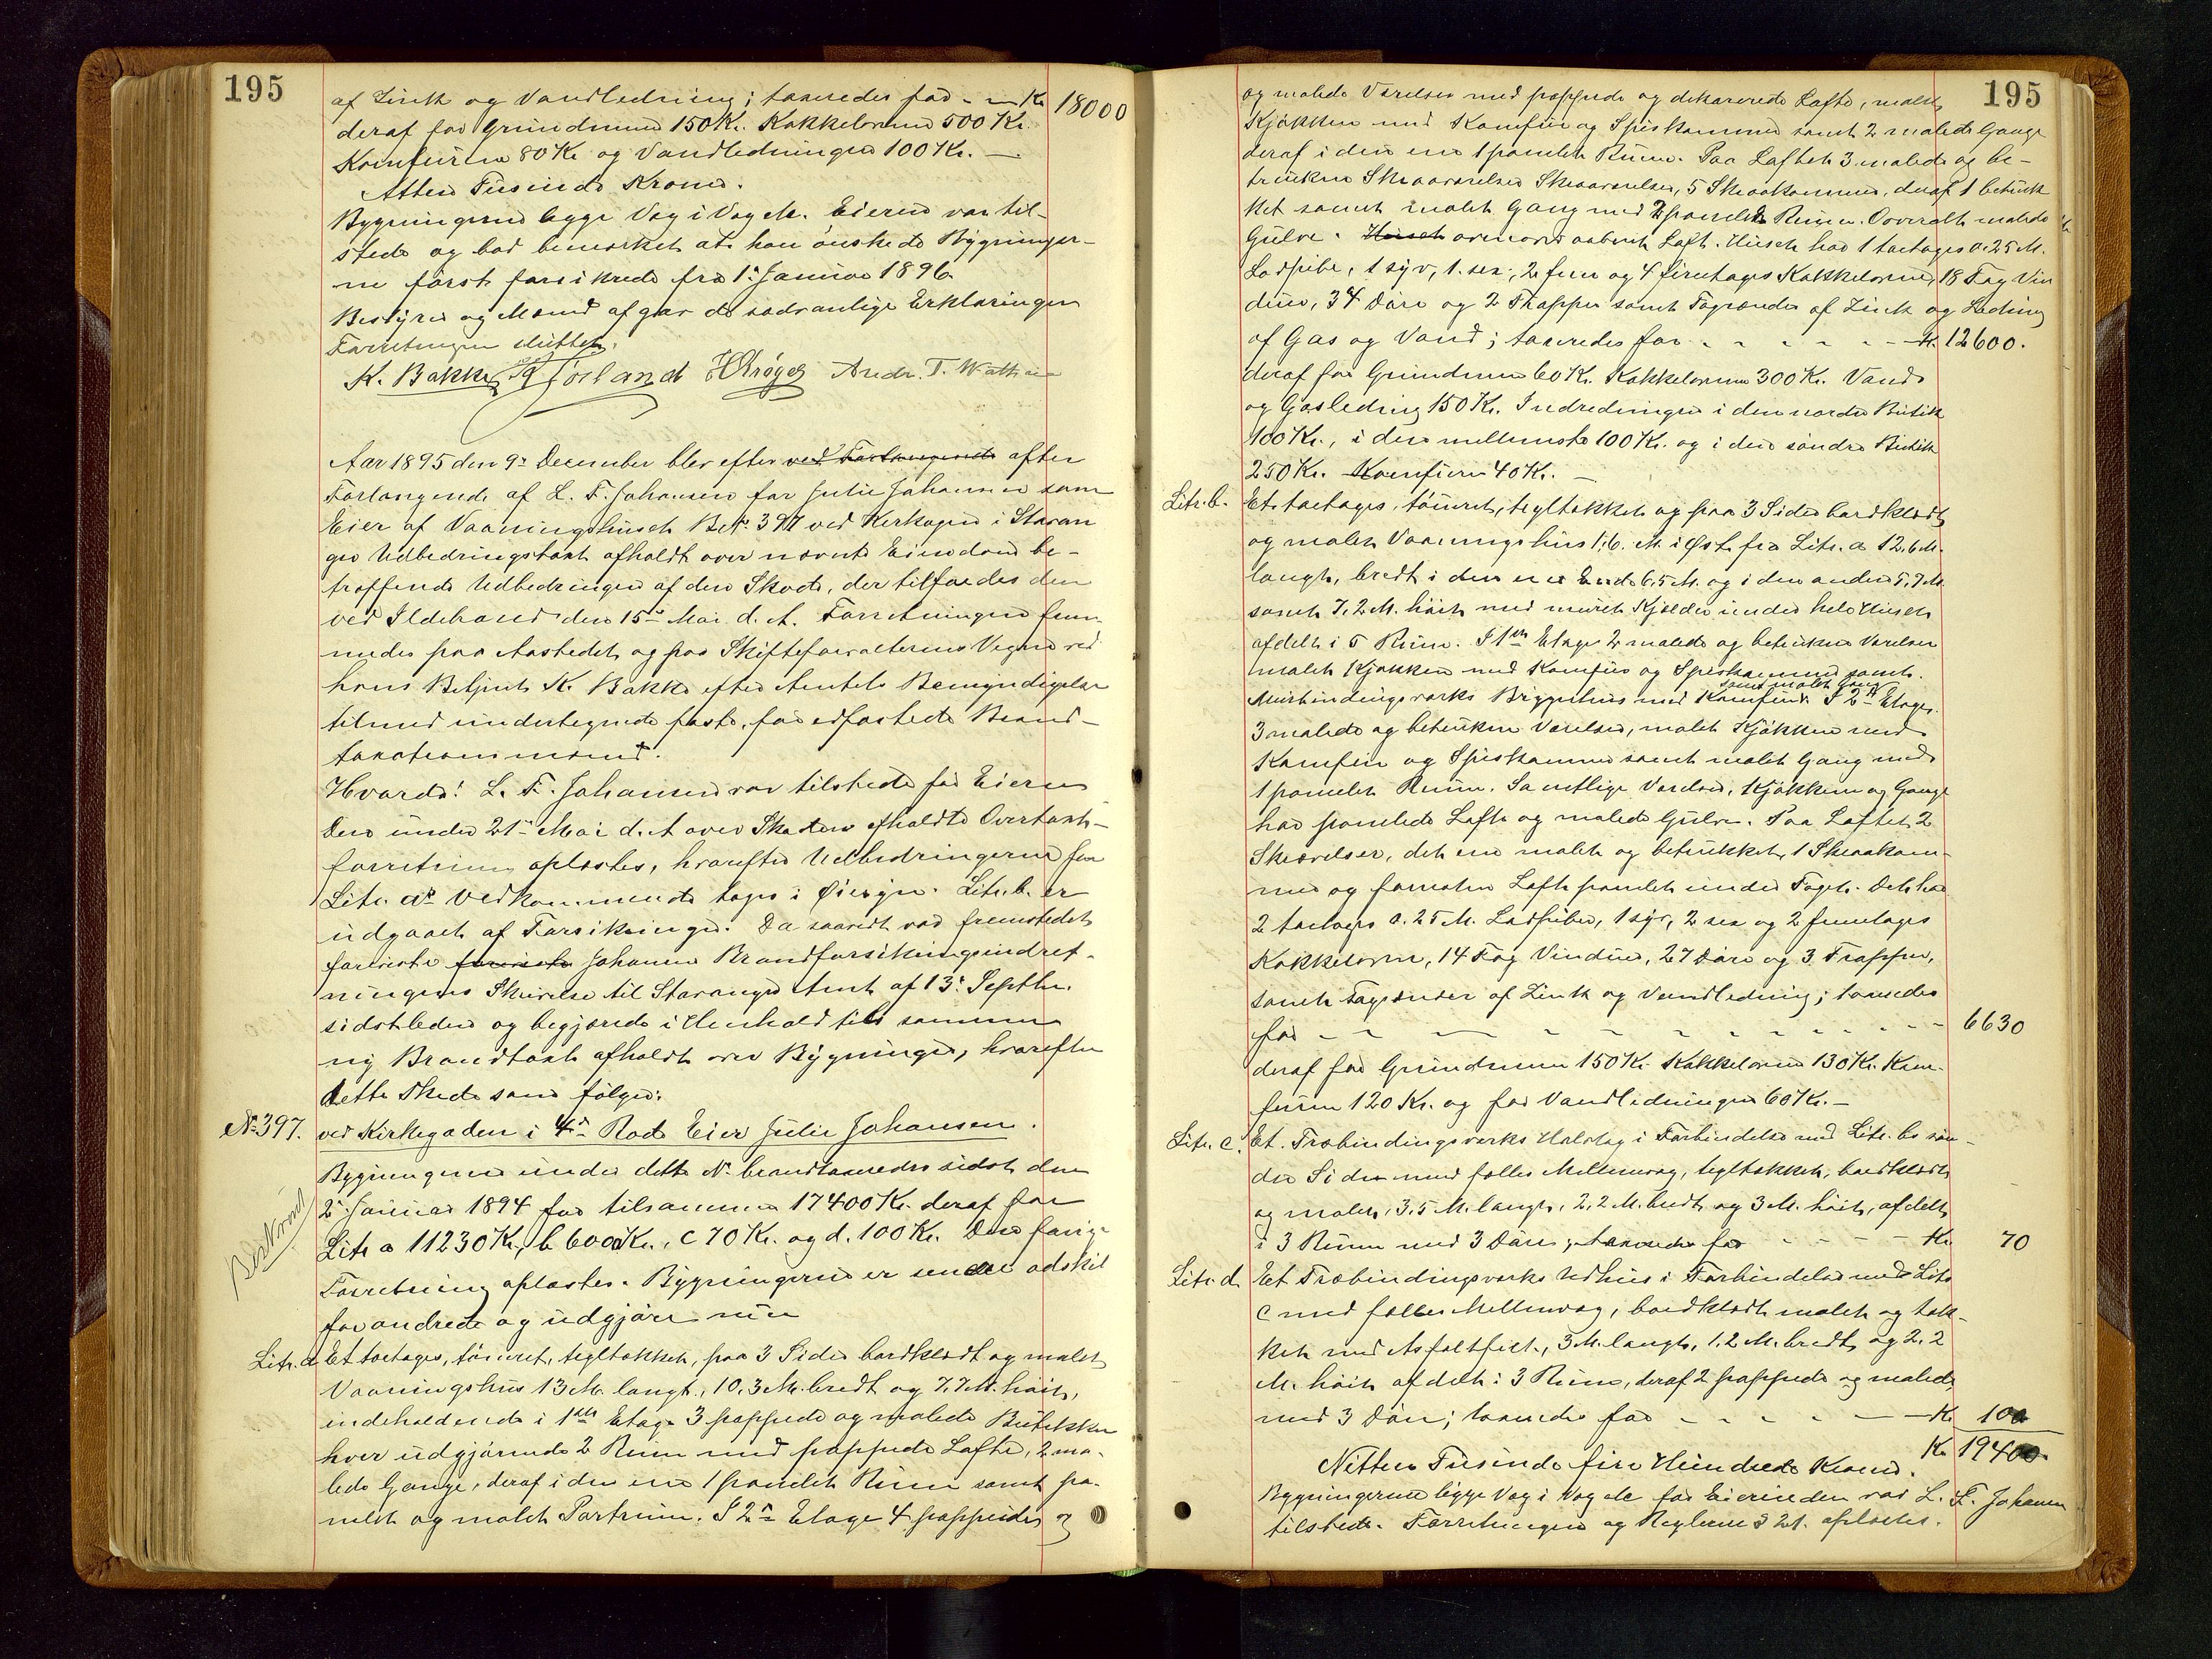 195
af Zink og Vandledning; taxeredes for - — Kr. 18000
deraf for Grundmuren 150 Kr. Kakkelovnene 500 Kr.
Komfurerne 80 Kr. og Vandledningen 100 Kr. —
Atten Tusinde Kroner.
Bygningerne ligge Vag i Vag M. Eieren var til-
stede og bad bemærket at han ønskede Bygninger-
ne først forsikrede fra 1ste Januar 1896.
Bestyrer og Mænd afgav de sædvanlige Erklæringer
Forretningen sluttet.
K. Bakke Kroger Andr. T. Wathne
Aar 1895 den 9de December blev efter ved Forlangende efter
Forlangende af L. F. Johansen for Julie Johansen som
Eier af Vaaningshuset B.N. 397 ved Kirkegaden i Stavan
ger Udbedringstaxt afholdt over nævnte Eiendom be-
træffende Udbedringen af den Skade, der tilføiedes den
ved Ildebrand den 15de Mai d. A. Forretningen frem-
medes paa Aastedet og paa Skifteforvalterens Vegne ved
hans Betjent K. Bakke efter Amtets Bemyndigelse
tilmed undertegnede faste, for edfæstede Brand-
taxationsmænd.
Hvorda: L. F. Johansen var tilstede for Eieren
Den under 21de Mai d. A over Skaden afholdte Overtaxt-
forretning oplæstes, hvorefter Udbedringerne for
Litr. a's Vedkommende toges i Øiesyn. Litr. b. er
udgaaet af Forsikringen. Da saavidt var fremstedet
foreviste foreviste Johansen Brandforsikringsindret-
ningens Skrivelse til Stavanger Amt af 13de Septbr.
sidstleden og begjærede i Henhold til samme
ny Brandtaxt afholdt over Bygningen, hvorefter
dette skede som følger:
No 397. ved Kirkegaden i 4de Rode Eier Julie Johansen.
Bygningerne under dette No brandtaxeredes sidst den
2de Januar 1894 for tilsammen 17400 Kr. deraf for
Litr. a 11230 Kr, b 6000 Kr., c 70 Kr. og d. 100 Kr. Den forrige
Forretning oplæstes. Bygningerne er senere adskil
forandrede og udgjøre nu
Litr. a Et toetages, tømret, tegltækket, paa 3 Sider bordklædt og malet
Vaaningshus 13 M. langt, 10,3 M. bredt og 7,7 M. høit,
indeholdende i 1ste Etage 3 pappede og malede Butikker
hver udgjørende 2 Rum med pappede Lofte, 2 ma-
lede Gange, deraf i den ene 1 panelet Rum samt pa-
nelet og malet Portrum. I 2den Etage 4 pappede og
195
og malede Værelser med pappede og dekorerede Lofte, malet
Kjøkken med Komfur og Spiskammer samt 2 malede Gange
deraf i den ene 1 panelet Rum. Paa Loftet 3 malede og be-
trukne Skraaværelser Skraaværelser, 5 Skraakammer, deraf 1 betruk
ket samt malet Gang med 2 panelet Rum. Overalt malede
Gulve. Huset ovenover aabent Loft. Huset har 1 toetages a. 25 M.
Ladpibe, 1 syv, 1. sex, 2 fem og 4 firetages Kakkelovne, 18 Fag Vin
duer, 34 Døre og 2 Trapper samt Tagrender af Zink og Ledning
af Gas og Vand; taxeredes for - - - - - Kr. 12600.
deraf for Grundmuren 60 Kr. Kakkelovnene 300 Kr. Vand-
og Gasledning 150 Kr. Indredningen i den nordre Butik
100 Kr., i den mellemste 100 Kr. og i den søndre Butik
250 Kr. Komfuren 40 Kr. —
Litr. b. Et toetages, tømret, tegltækket og paa 3 Sider bordklædt
og malet Vaaningshus 1,6. M. i Øst fra Litr. a 12,6 M.
langt, bredt i den ene Ende 6,5 M. og i den anden 5,7 M.
samt 7,2 M. høit med muret Kjelder under hele Huset
afdelt i 5 Rum. I 1ste Etage 2 malede og betrukne Værelser
malet Kjøkken med Komfur og Spiskammer samt
samt malet Gang
Murbindingsværks Bryggehus med Komfur. I 2den Etage.
3 malede og betrukne Værelser, malet Kjøkken med
Komfur og Spiskammer samt malet Gang med
1 panelet Rum. Samtlige Værelser, Kjøkkener og Gange
har panelede Lofte og malede Gulve. Paa Loftet 2
Skværelser, det ene malet og betrukket, 1 Skraakam-
mer og forresten Loft panelet under Taget. Det har
2 toetages a. 25 M. Ladpiber, 1 syv, 2 sex og 2 femetages
Kakkelovne, 14 Fag Vinduer, 27 Døre og 3 Trapper,
samt Tagrender af Zink og Vandledning; taxeredes
for - - - - - - - - - - - 6630
deraf for Grundmuren 150 Kr. Kakkelovnene 130 Kr. Kom-
furene 120 Kr. og for Vandledningen 60 Kr. —
Litr. c. Et Træbindingsværks Halvtag i Forbindelse med Litr. bs søn-
dre Side med fælles Mellemvæg, tegltækket, bordklædt
og malet, 3,5 M. langt, 2,2 M. bredt og 3 M. høit, afdelt
i 3 Rum med 3 Døre; taxeredes for - - - - Kr. 70
Litr. d. Et Træbindingsværks Udhus i Forbindelse med Litr
c med fælles Mellemvæg, bordklædt malet og tæk-
ket med Asfaltfilt, 3 M. langt, 1,2 M. bredt og 2,2
M. høit afdelt i 3 Rum, deraf 2 pappede og malede,
med 3 Døre; taxeredes for - - - - - Kr. 100
Kr. 19400
Nitten Tusinde fire Hundrede Kroner.
Bygningerne ligge Vag i Vag M for Eierinden var L. F. Johansen
tilstede. Forretningen og Reglerne § 21. oplæstes.